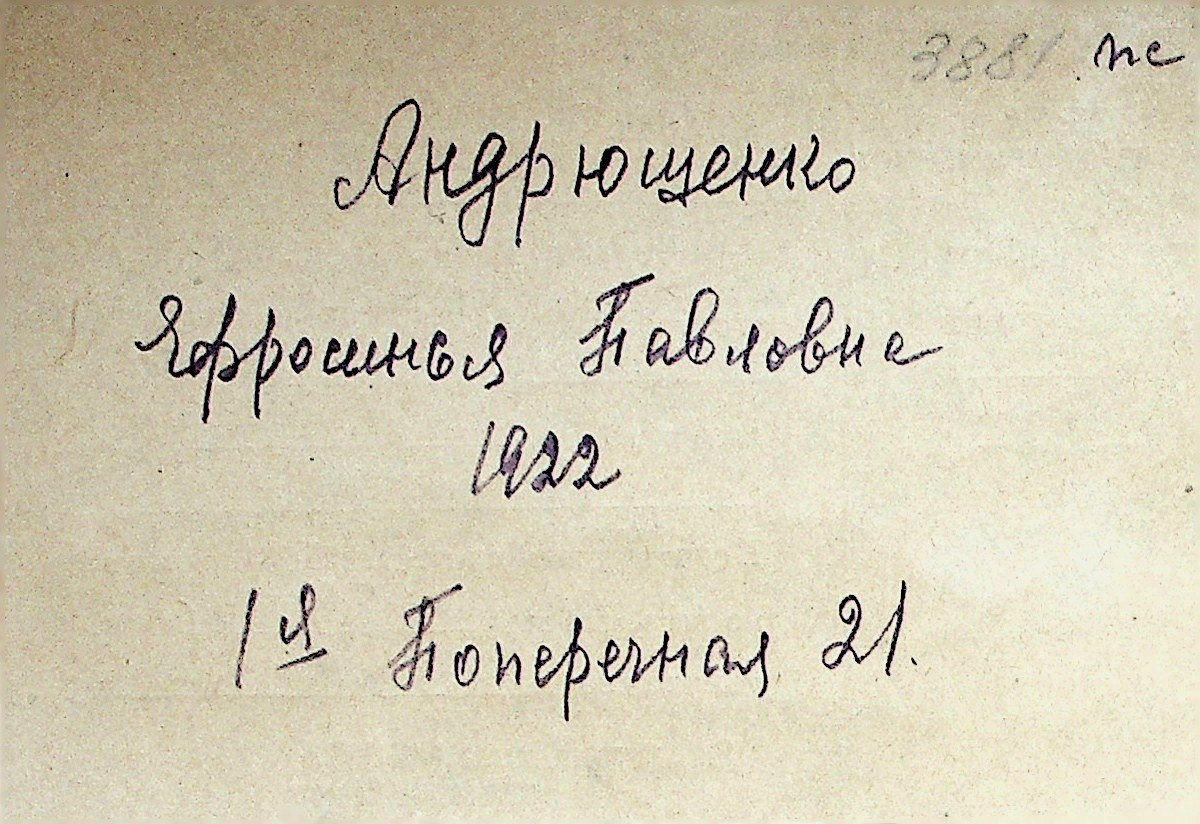 3881 пс
Андрющенко
Ефросинья Павловна
1922
1я Поперечная 21.